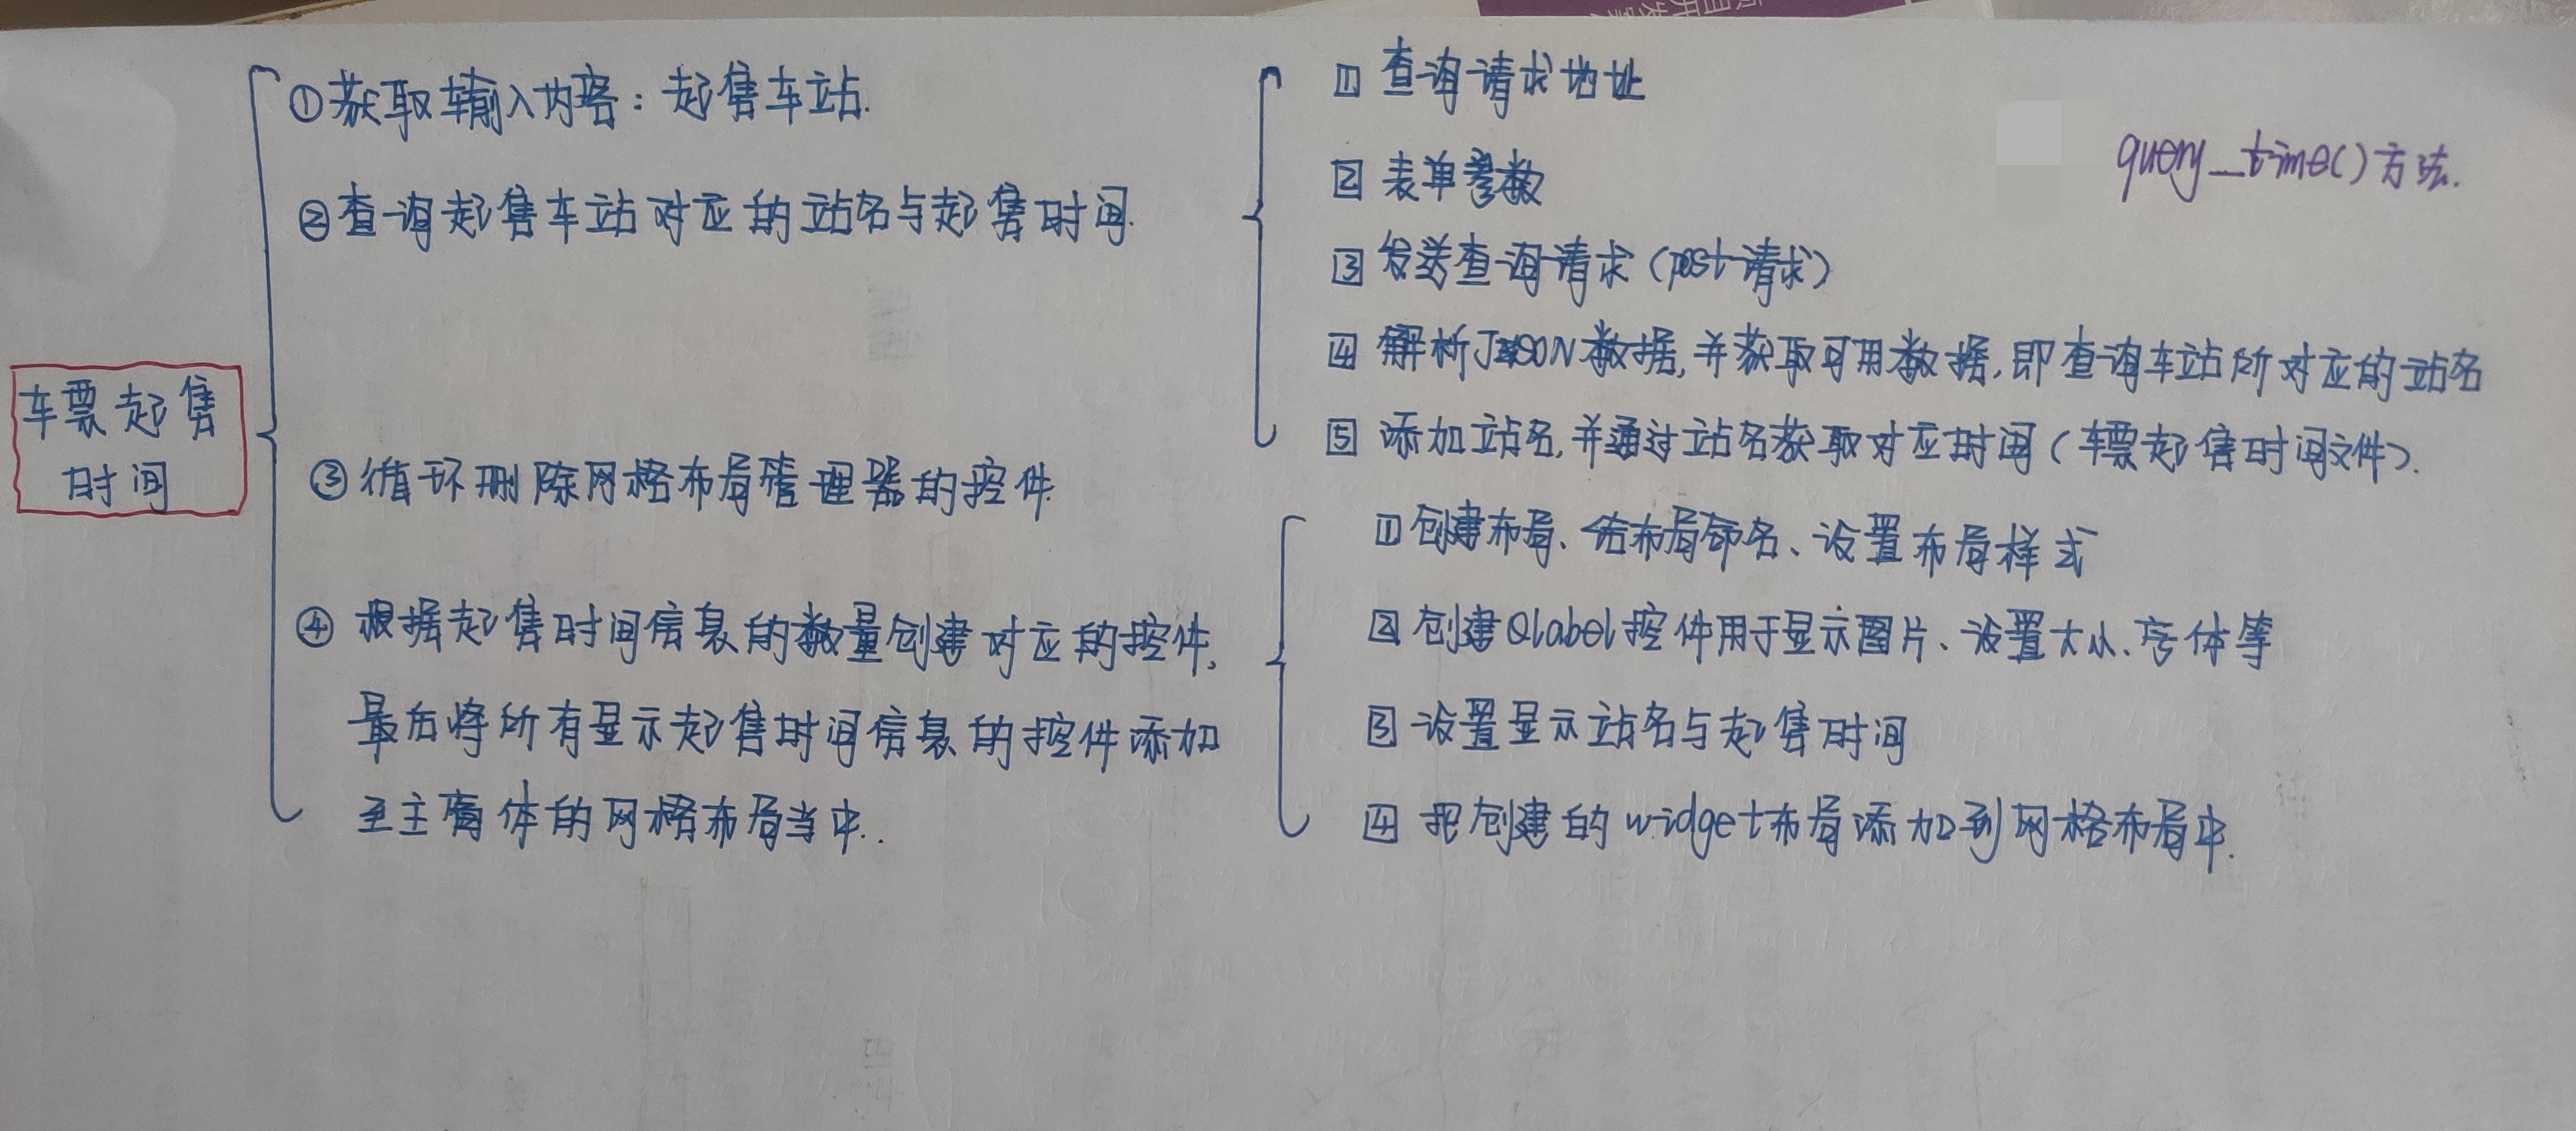 车票起售
时间
①获取输入内容：起售车站.
②查询起售车站对应的站名与起售时间.
③循环删除网格布局管理器的控件.
④根据起售时间信息的数量创建对应的控件,
最后将所有显示起售时间信息的控件添加
至主窗体的网格布局当中..
query_time()方法.
1 查询请求地址
2 表单参数
3 发送查询请求（post请求）
4 解析JSON数据,并获取可用数据,即查询车站所对应的站名
5 添加站名,并通过站名获取对应时间（车票起售时间文件）.
1 创建布局、给布局命名、设置布局样式
2 创建Qlabel控件用于显示图片、设置大小、字体等
3 设置显示站名与起售时间
4 把创建的widget布局添加到网格布局中.